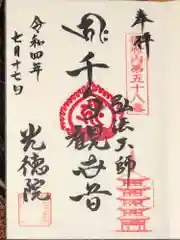 奉拝
御府内第五十八番
弘法大師
千手観世音
令和四年
七月十七日
光徳院